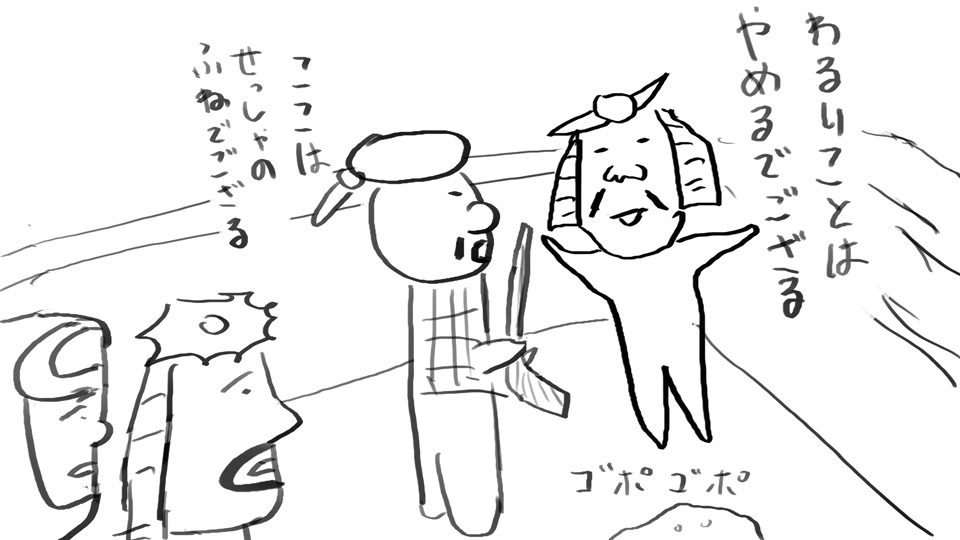 わるいことは
やめるでござる
ここは
せっしゃの
ふねでござる
ゴポ ゴポ